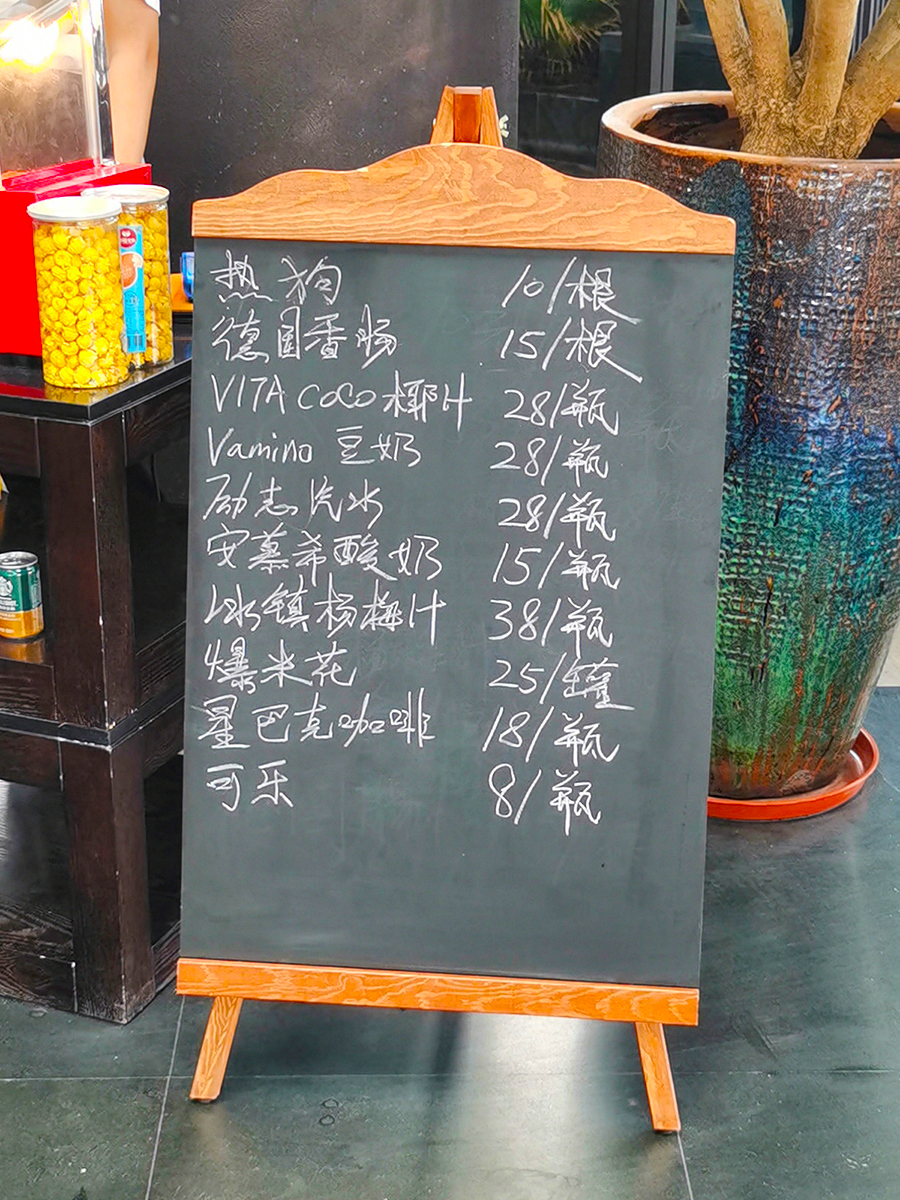 热狗 10/根
德国香肠 15/根
VITA COCO 椰汁 28/瓶
Vamino 豆奶 28/瓶
励志汽水 28/瓶
安慕希酸奶 15/瓶
冰镇杨梅汁 38/瓶
爆米花 25/罐
星巴克咖啡 18/瓶
可乐 8/瓶